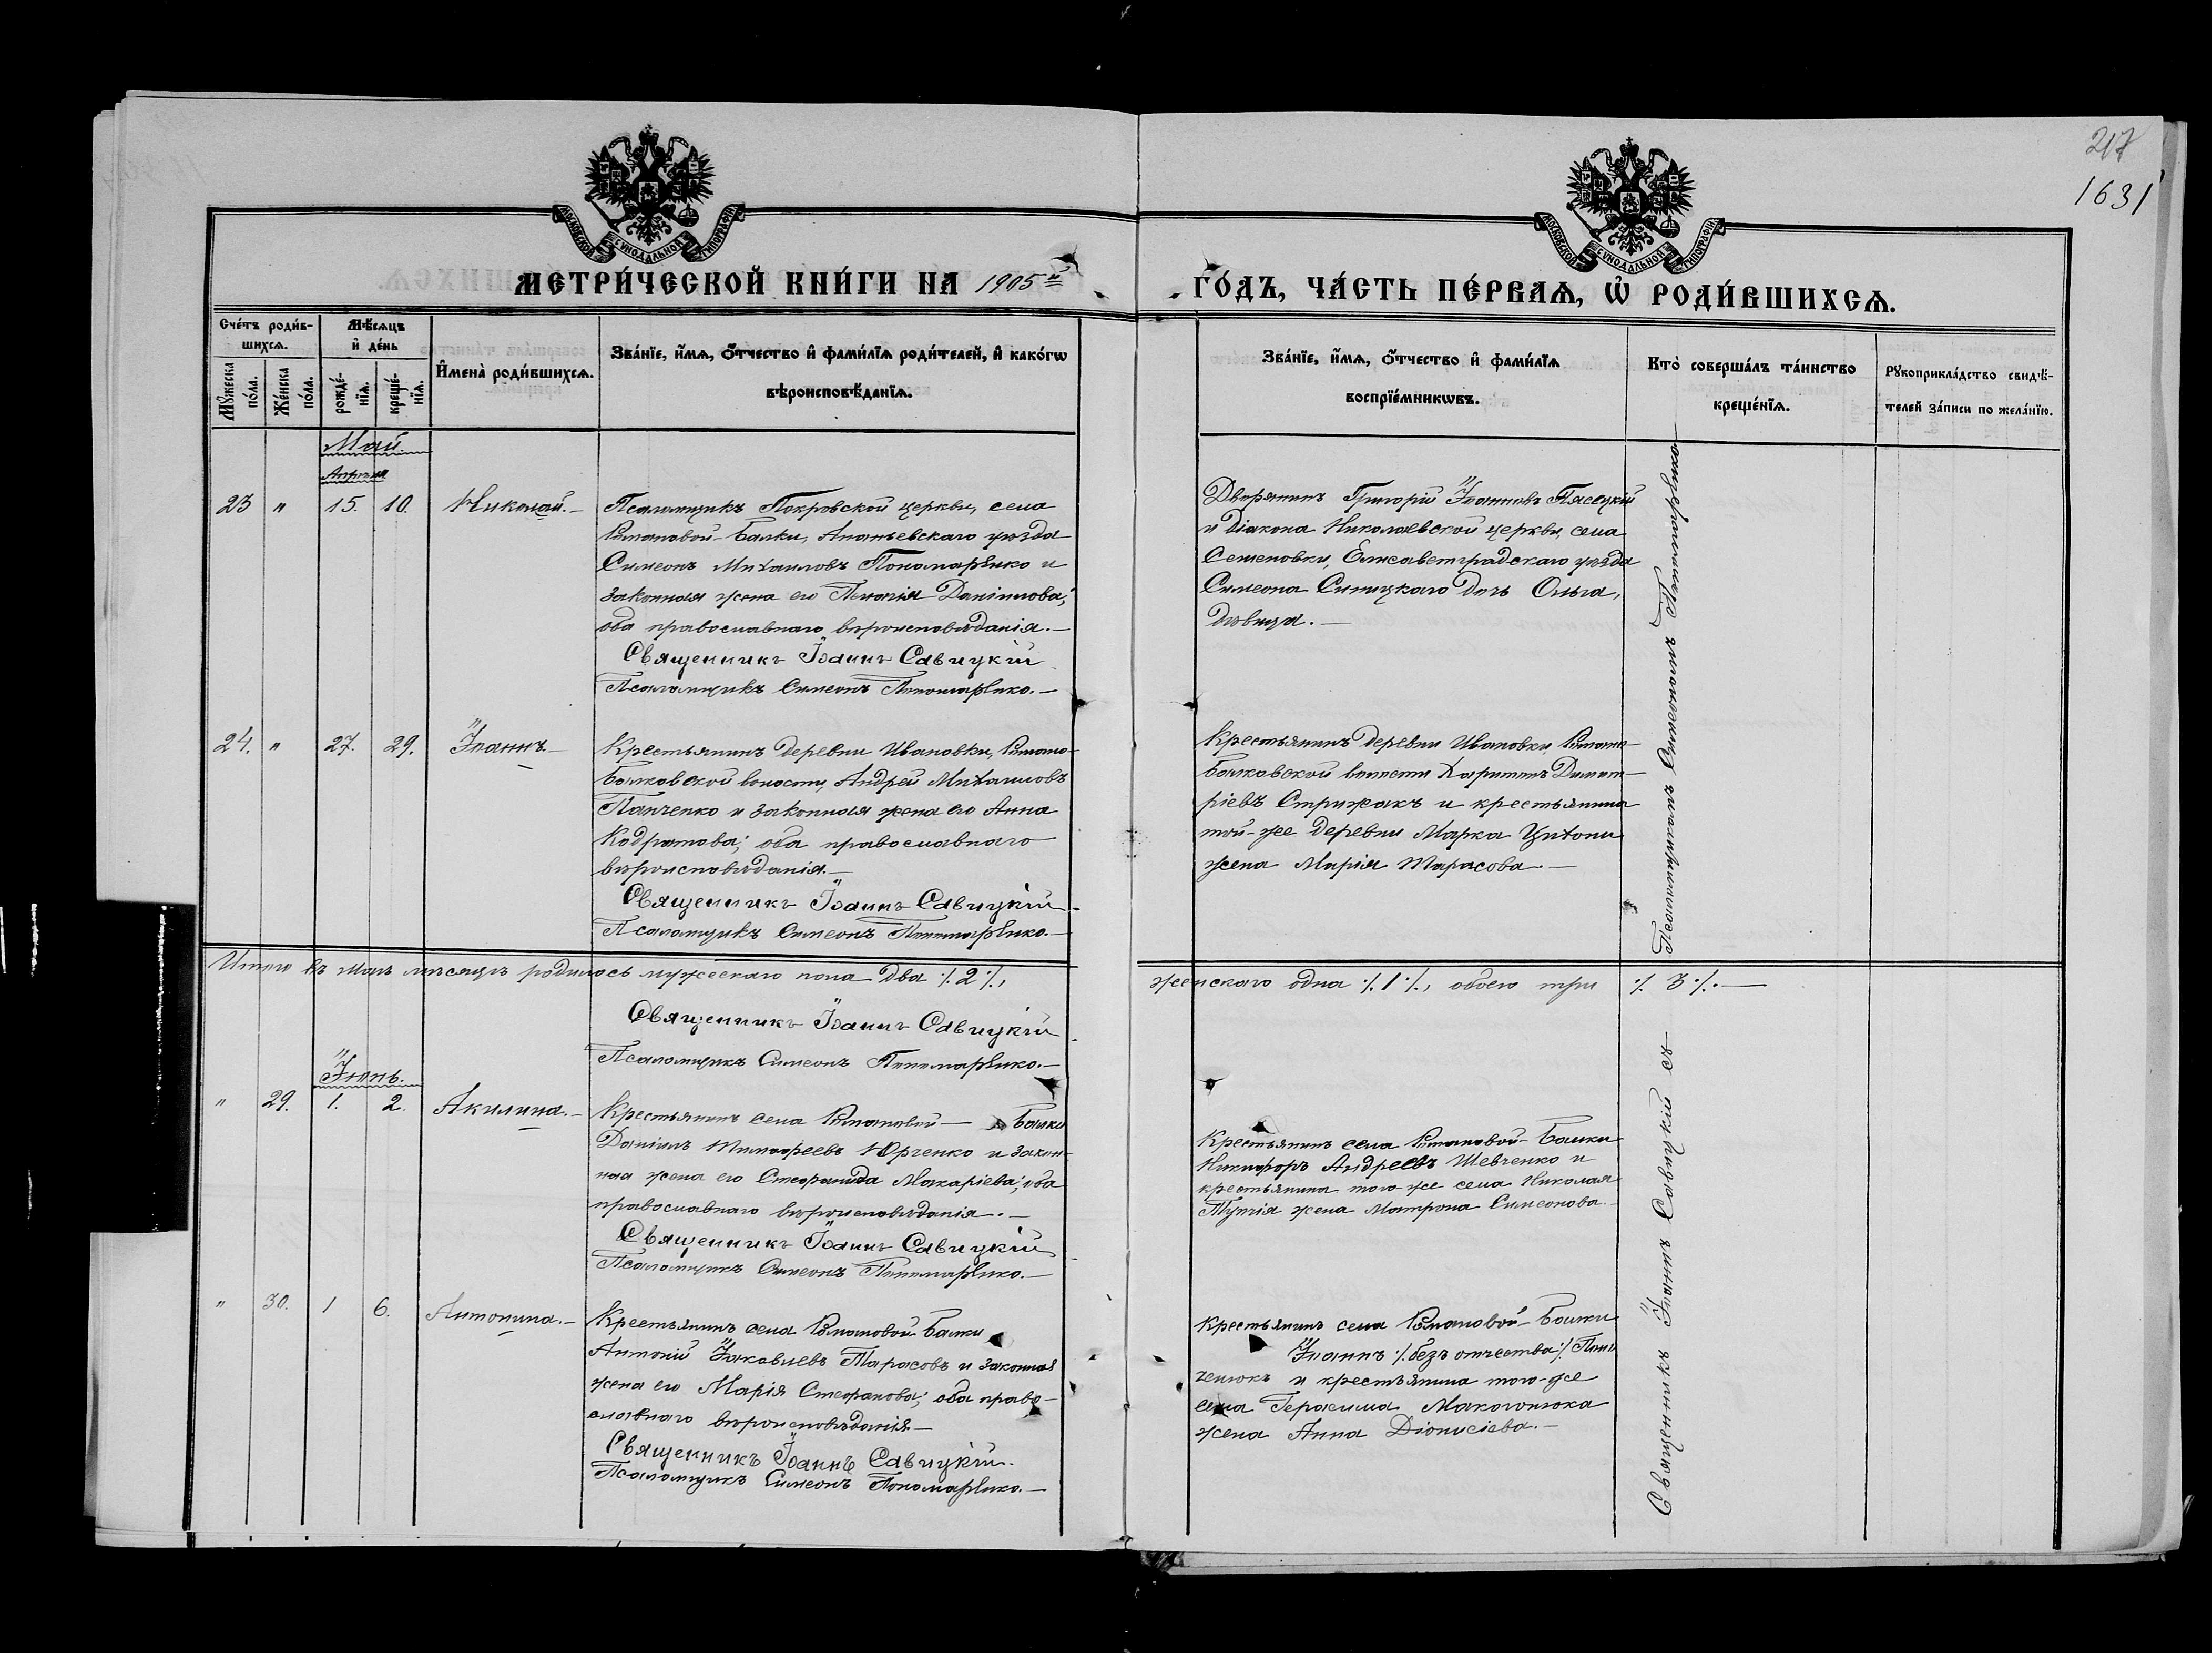 217
1631
МОСКОВСКОЙ СѴНОДАЛЬНОЙ ТИПОГРАФІИ
МОСКОВСКОЙ СѴНОДАЛЬНОЙ ТИПОГРАФІИ
МЕТРИ́ЧЕСКОЙ КНИ́ГИ НА 1905й
ГО́ДЪ, ЧА́СТЬ ПЕ́РВАѦ, Ѽ РОДИ́ВШИХСѦ.
Сче́тъ роди́в-
шихсѧ.
Мꙋ́жеска по́ла.
Же́нска по́ла.
Мѣ́сѧцъ
и҆ де́нь
рожде́-
нїѧ.
креще́-
нїѧ.
И҆мена̀ роди́вшихсѧ.
Зва́нїе, и҆́мѧ, ѻ҆́тчество и҆ фами́лїѧ роди́телей, и҆ како́гѡ
вѣроисповѣ́данїѧ.
Зва́нїе, и҆́мѧ, ѻ҆́тчество и҆ фами́лїѧ
воспрїе́мникѡвъ.
Кто̀ соверша́лъ та́инство
креще́нїѧ.
Рꙋкоприкла́дство свидѣ́-
телей за́писи по жела́нїю.
Май.
Апрѣля
23 " 15. 10. Николай.—
Псаломщикъ Покровской церкви, села
Романовой-Балки, Ананьевскаго уѣзда
Симеонъ Михаиловъ Пономаренко и
законная жена его Пелагія Даніилова;
оба православнаго вѣроисповѣданія.—
Священникъ Іоаннъ Савицкій
Псаломщикъ Симеонъ Пономаренко.—
Дворянинъ Григорій Іоанновъ Пясецкій
и діакона Николаевской церкви, села
Семеновки, Елисаветградскаго уѣзда
Симеона Синицкаго дочь Ольга,
дѣвица.—
24. " 27. 29. Іоаннъ.—
Крестьянинъ деревни Ивановки, Романо-
Балковской волости, Андрей Михаиловъ
Панченко и законная жена его Анна
Кодратова; оба православнаго
вѣроисповѣданія.—
Священникъ Іоаннъ Савицкій
Псаломщикъ Симеонъ Пономаренко.—
Крестьянинъ деревни Ивановки, Романо-
Балковской волости Харитонъ Димит-
ріевъ Стрижакъ и крестьянина
той-же деревни Марка
жена Марія Тарасова.—
Итого въ маѣ мѣсяцѣ родилось мужескаго пола два ٪ 2 ٪,
женскаго одна ٪ 1 ٪, обоего три ٪ 3 ٪.—
Священникъ Іоаннъ Савицкій
Псаломщикъ Симеонъ Пономаренко.—
Іюнь.
" 29. 1. 2. Акилина.—
Крестьянинъ села Романовой — Балки
Даніилъ Тимофеевъ Юрченко и закон-
ная жена его Стефанида Макаріева; оба
православнаго вѣроисповѣданія.—
Священникъ Іоаннъ Савицкій
Псаломщикъ Симеонъ Пономаренко.—
Крестьянинъ села Романовой-Балки
Никифоръ Андреевъ Шевченко и
крестьянина того-же села Николая
жена Матрона Симеонова
" 30. 1 6. Антонина.—
Крестьянинъ села Романовой-Балки
Антоній Іаковлевъ Тарасовъ и законная
жена его Марія Стефанова; оба право-
славнаго вѣроисповѣданія.—
Священникъ Іоаннъ Савицкій.
Псаломщикъ Симеонъ Пономаренко.—
Крестьянинъ села Романовой-Балки
Іоаннъ ٪ безъ отчества ٪
и крестьянина того-же
села Герасима Макогонюка
жена Анна Діонисіева.—
Священникъ Іоаннъ Савицкій съ
Псаломщикомъ Симеономъ Пономаренко